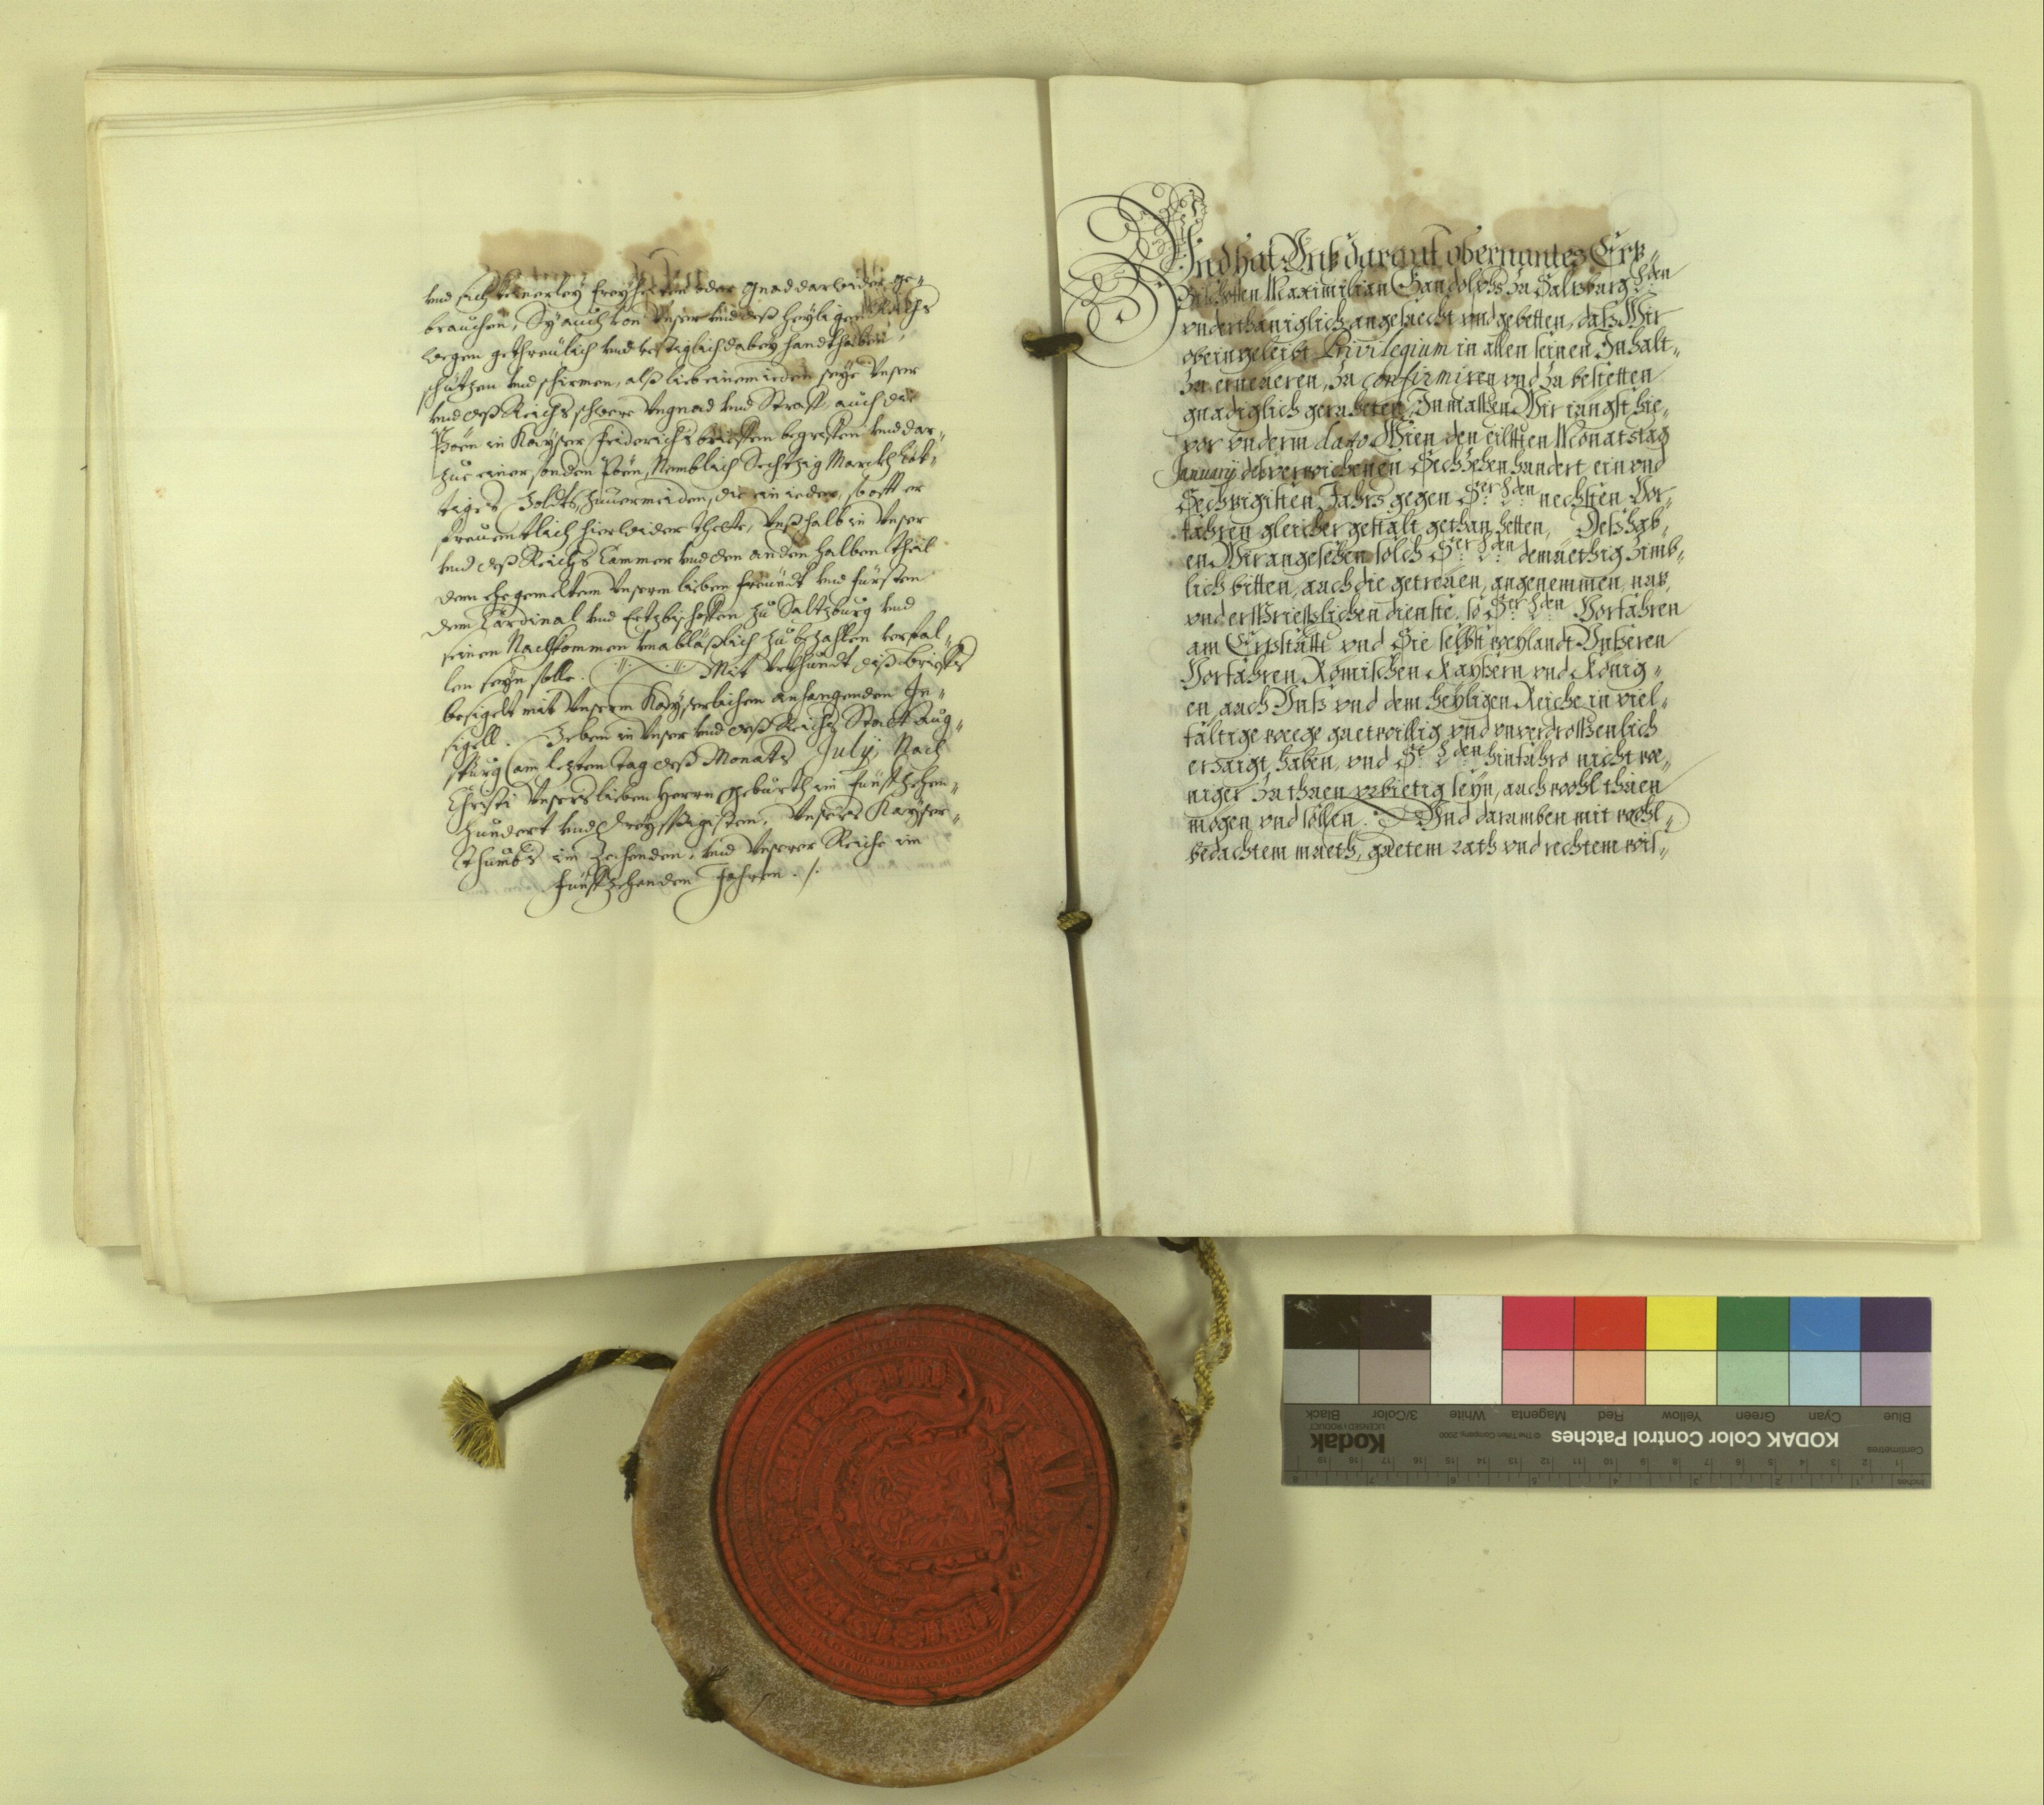 und sich keinerley freyheiten oder gnad darwider ge-
brauchen, Sy auch von Unser und deß heyligen Reichs
wegen getreulich und vestiglich dabey handthaben,
schützen und schirmen, alß lieb einem ieden seye Unser
und deß Reichs schwere Ungnad und Straff, auch die
Pöen in Kayser Friderichs brieffen begriffen und dar-
zue einer sondern Pöen, Nemblich Sechtzig Marckh Löt-
tiges Goldts, zuuermeiden, die ein ieder, so offt er
freuentlich hierwider thette, Unß halb in Unser
und deß Reichs Cammer und den andern halben theil
dem ehegemeltem Unserm lieben freündt und fürsten
dem Cardinal und Ertzbischoffen zu Saltzburg und
seinen Nachkommen unabläßlich zu bezahlen verfal-
len seyn solle. Mit Urkhundt diß brieffs
besigelt mit Unserm Kayserlichem anhangendem In-
sigell. Geben in Unser und deß Reichs Statt Aug-
spurg am letzten tag deß Monats July, Nach
Christi Unsers lieben Herrn geburth im Fünffzehen-
hundert und Dreyssigisten, Unsers Kayser-
thumbs im Zehenden, und Unserer Reiche im
Fünffzehenden Jahren ./.
Und hat Unß darauf obernantes Erz-
Bischoffen Maximilian Gandolphs zu Salzburg L:den
underthäniglich angesuecht und gebetten, daß Wir
obeingeleibt Privilegium in allen seinen Inhalt-
zu erneueren, zu confirmiren und zu bestetten
gnädiglich geruheten, Inmassen Wir jüngst hie-
vor underm dato Wien den eilfften Monatstag
January des verwichenen Sechzehenhundert ein und
Sechzigisten Jahrs gegen Sr: L:den nechsten Vor-
fahren gleicher gestalt gethan hetten, Deß hab-
en Wir angesehen solch Sr: L:den demüethig zimb-
lich bitten, auch die getreuen, angenemmen, nuz,
und ersprießlichen dienste, so Sr: L:den Vorfahren
am Erzstüfft und Sie selbst weylandt Unseren
Vorfahren Römischen Kaysern und König-
en, auch Unß und dem heyligen Reiche in viel-
fältige weege guetwillig und unverdrossenlich
erzaigt haben, und Sr: L:den hinführo nicht we-
niger zu thuen urbietig seyn, auch wohl thuen
mögen und sollen. Und darumben mit wohl-
bedachtem mueth, guetem rath und rechtem wis-
KODAK Color Control Patches
Kodak
LICENSED PRODUCT
© The Tiffen Company, 2000
Blue Cyan Green Yellow Red Magenta White 3/Color Black
Centimetres
Inches